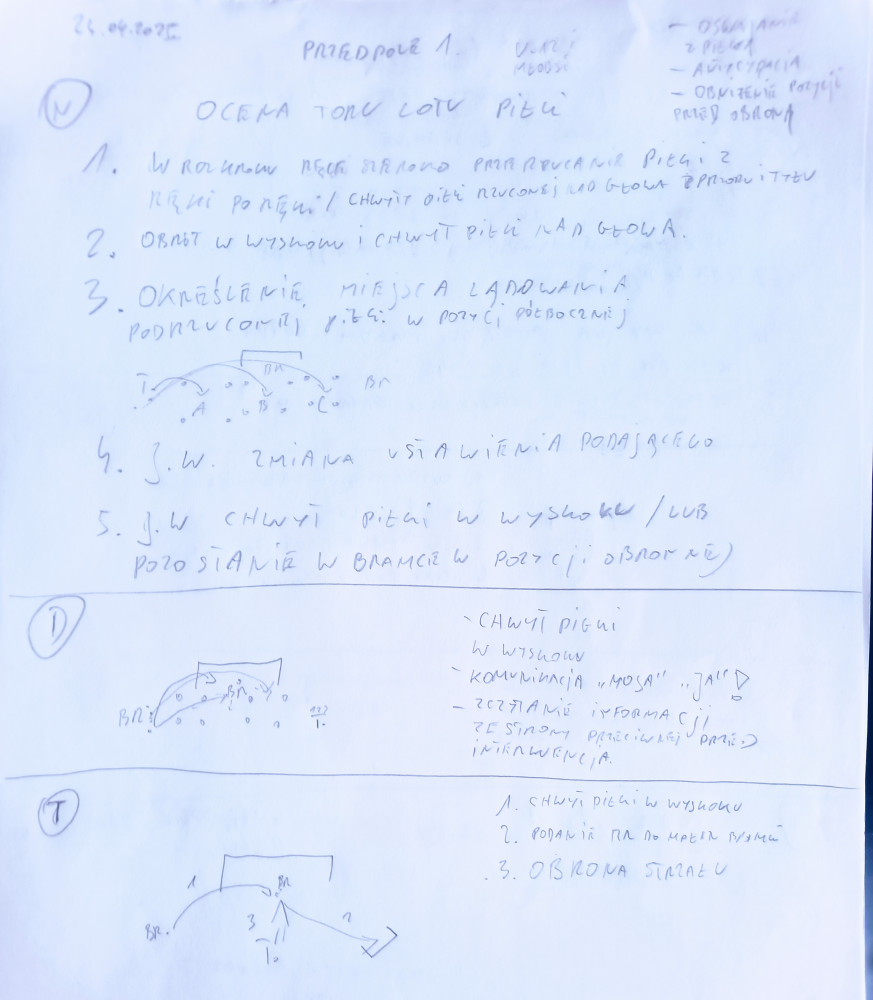 26.04.2025
PRZEDPOLE 1.
U-12 i
MŁODSI
- OSWAJANIE
Z PIŁKĄ
- ANTYCYPACJA
- OBNIŻENIE POZYCJI
PRZED OBRONĄ
N
OCENA TORU LOTU PIŁKI
1. W ROZKROKU RĘCE SZEROKO PRZERZUCANIE PIŁKI Z
RĘKI DO RĘKI / CHWYT PIŁKI RZUCONEJ NAD GŁOWĄ Z PRZODU I TYŁU
2. OBRÓT W WYSKOKU I CHWYT PIŁKI NAD GŁOWĄ.
3. OKREŚLENIE MIEJSCA LĄDOWANIA
PODRZUCONEJ PIŁKI W POZYCJI PÓŁBOCZNEJ
T.
BR
BR
A
B
C
4. J.W. ZMIANA USTAWIENIA PODAJĄCEGO
5. J.W CHWYT PIŁKI W WYSKOKU / LUB
POZOSTANIE W BRAMCE W POZYCJI OBRONNEJ
D
BR
BR
T.
- CHWYT PIŁKI
W WYSKOKU
- KOMUNIKACJA "MOJA" "JA"!
- ZCZYTANIE INFORMACJI
ZE STRONY PRZECIWNEJ PRZED
INTERWENCJĄ.
T
1. CHWYT PIŁKI W WYSKOKU
2. PODANIE DO MAŁEJ BRAMKI
3. OBRONA STRZAŁU
1
BR
BR.
3
2
T.